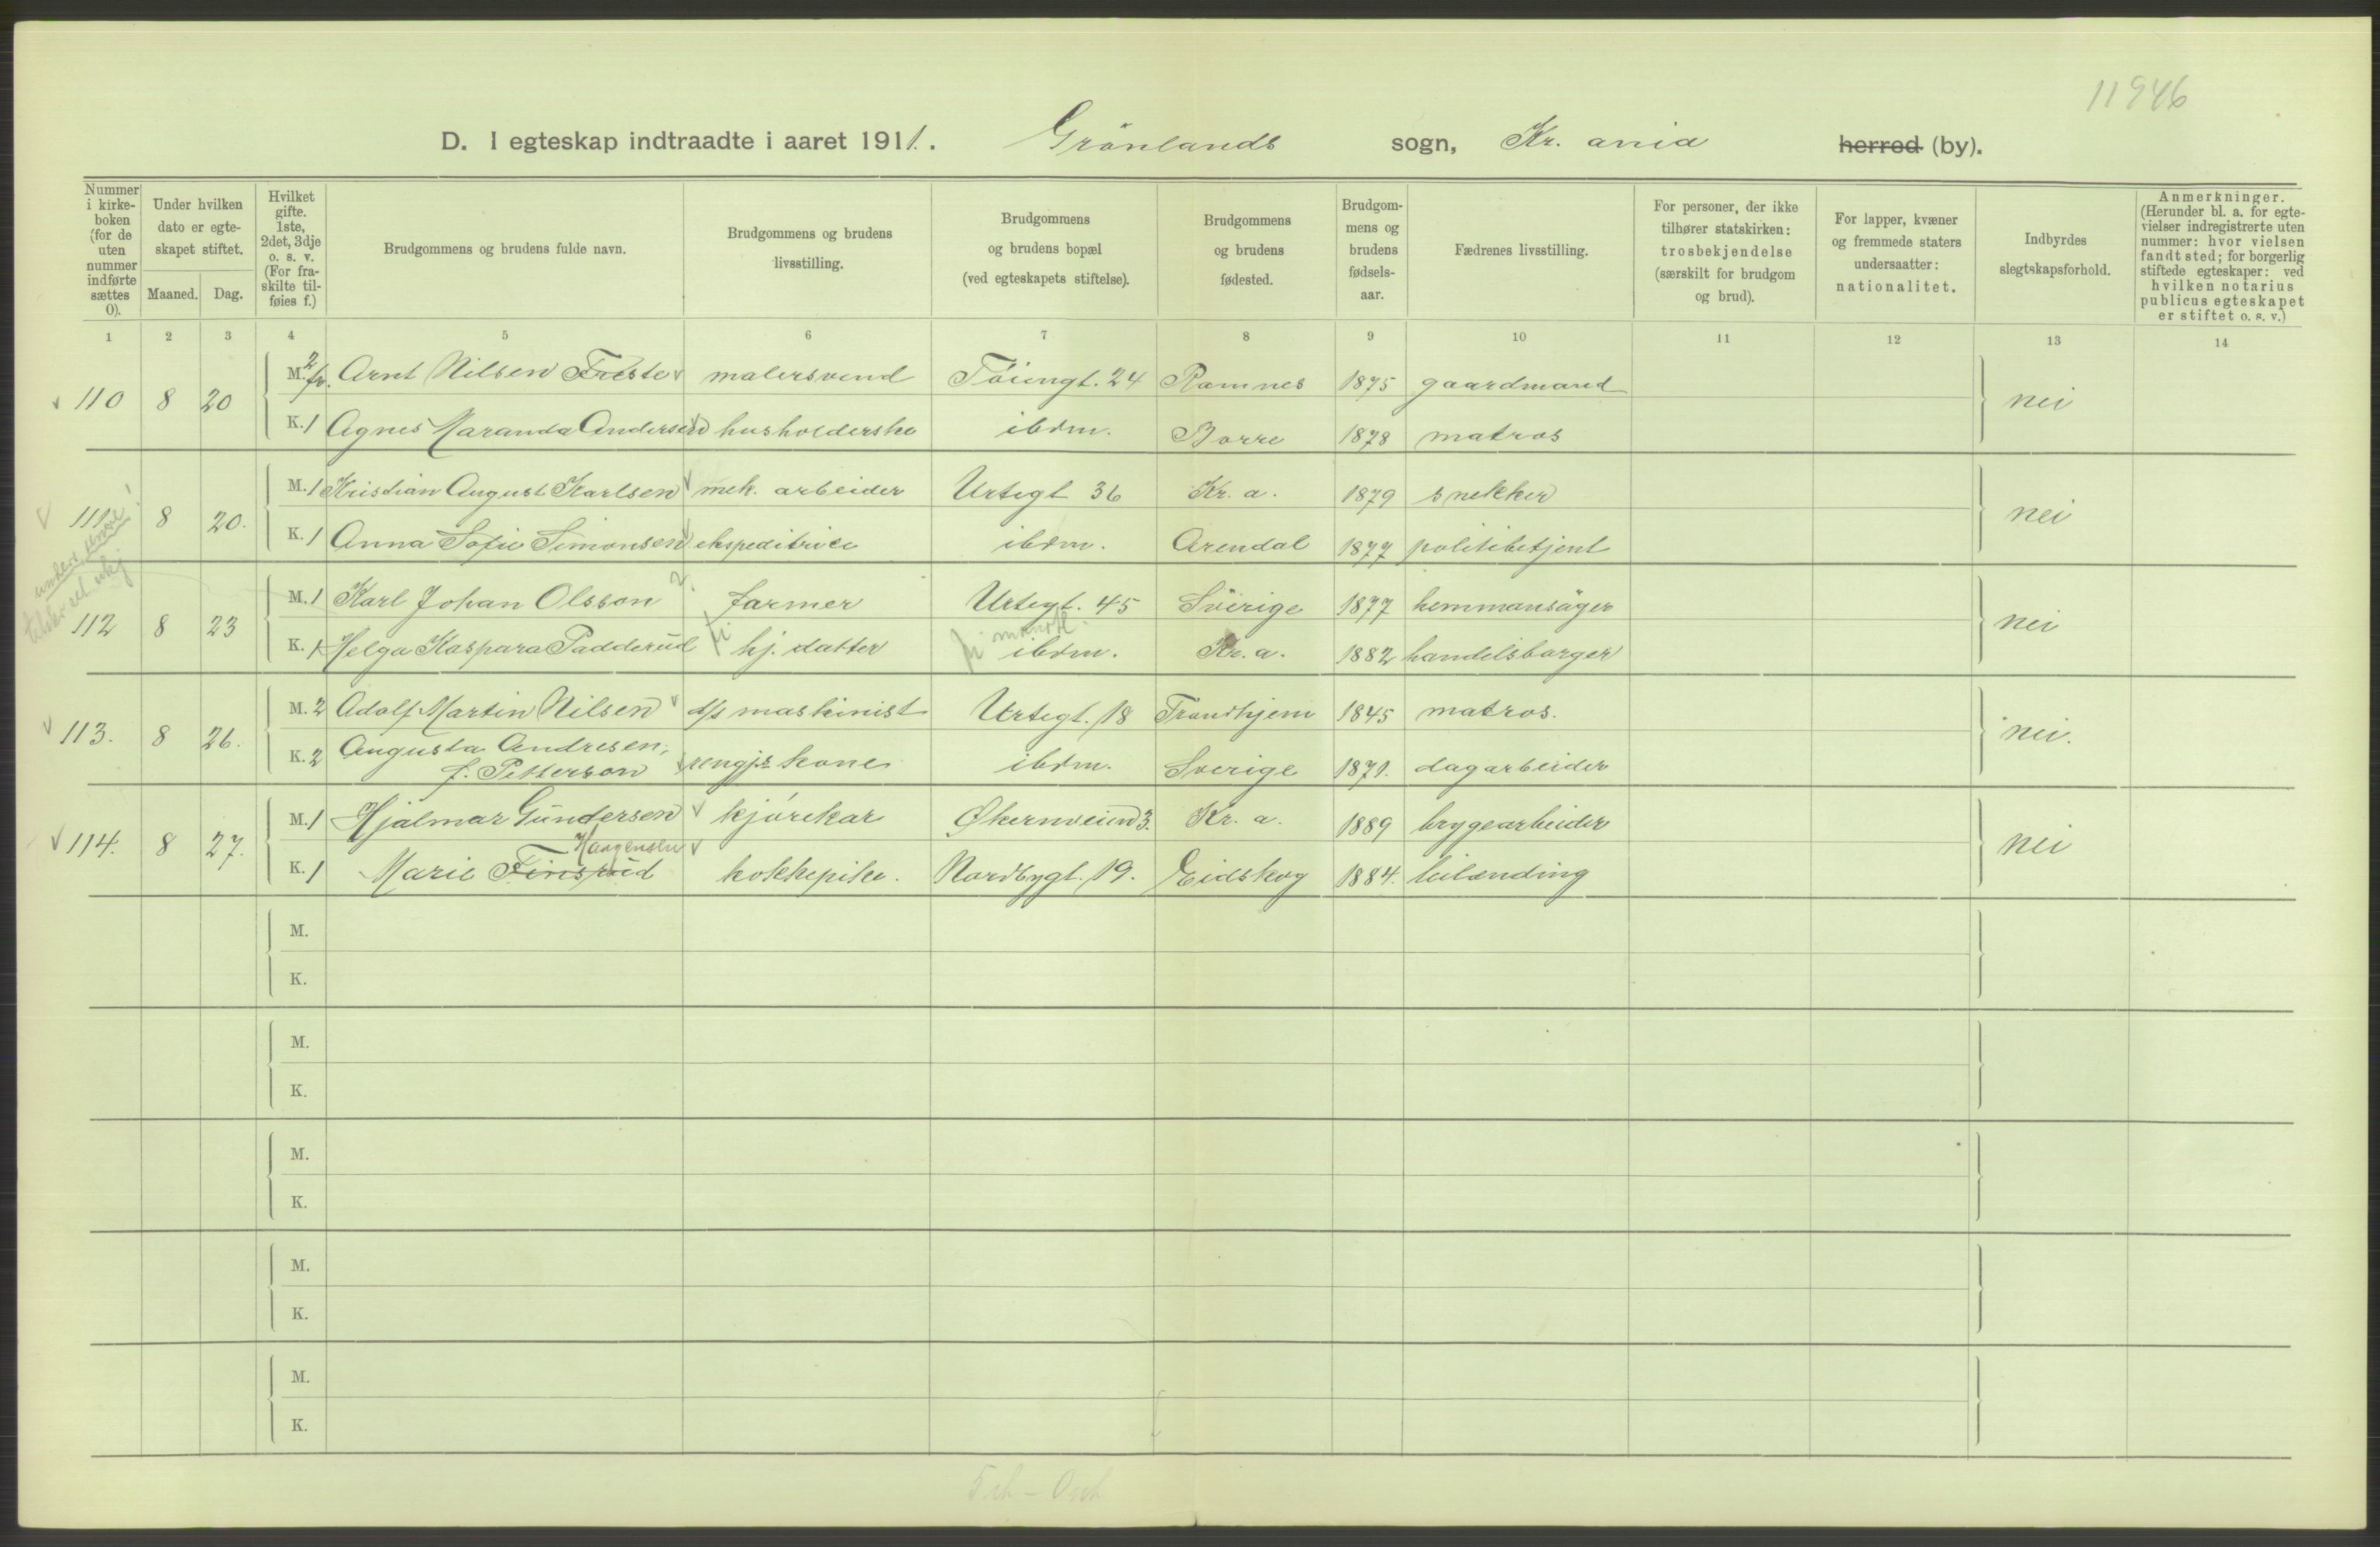 11946
D. I egteskap indtraadte i aaret 1911. Grönlands sogn, Kr. ania herred (by).
Nummer i kirke- boken (for de uten nummer indførte sættes 0).
Under hvilken dato er egte- skapet stiftet.
Maaned. Dag.
Hvilket gifte. 1ste, 2det, 3dje o. s. v. (For fra- skilte til- føies f.)
Brudgommens og brudens fulde navn.
Brudgommens og brudens livsstilling.
Brudgommens og brudens bopæl (ved egteskapets stiftelse).
Brudgommens og brudens fødested.
Brudgom- mens og brudens fødsels- aar.
Fædrenes livsstilling.
For personer, der ikke tilhører statskirken: trosbekjendelse (særskilt for brudgom og brud).
For lapper, kvæner og fremmede staters undersaatter: nationalitet.
Indbyrdes slegtskapsforhold.
Anmerkninger. (Herunder bl. a. for egte- vielser indregistrerte uten nummer: hvor vielsen fandt sted; for borgerlig stiftede egteskaper: ved hvilken notarius publicus egteskapet er stiftet o. s. v.)
1 2 3 4 5 6 7 8 9 10 11 12 13 14
110 8 20 M. 2 fr. Arnt Nilsen Freste malersvend Töiengt. 24 Ramnes 1875 gaardmand nei
K. 1 Agnes Maranda Andersen husholderske ibdm. Borre 1878 matros
111 8 20. M. 1 Kristian August Karlsen mek. arbeider Urtegt 36 Kr. a. 1879 snekker nei
K. 1 Anna Sofie Simonsen ekspeditrice ibdm. Arendal 1877 politibetjent
112 8 23 M. 1 Karl Johan Olsson farmer Urtegt. 45 Sverige 1877 hemmansäger nei
K. 1 Helga Kaspara Padderud hj. datter ibdm. Kr. a. 1882 handelsborger
113. 8 26. M. 2 Adolf Martin Nilsen d/s maskinist Urtegt. 18 Trondhjem 1845 matros. nei.
K. 2 Augusta Andresen,
f. Petterson rengj.s kone ibdm. Sverige 1871. dagarbeider
114. 8 27. M. 1 Hjalmar Gundersen kjørekar Økernveien 3. Kr. a. 1889 brygearbeider nei
Haagensen
K. 1 Marie Finsrud kokkepike. Nordbygt. 19. Eidskog 1884. leilænding
M.
K.
M.
K.
M.
K.
M.
K.
M.
K.